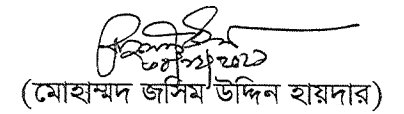 (মোহাম্মদ জসিম উদ্দিন হায়দার)